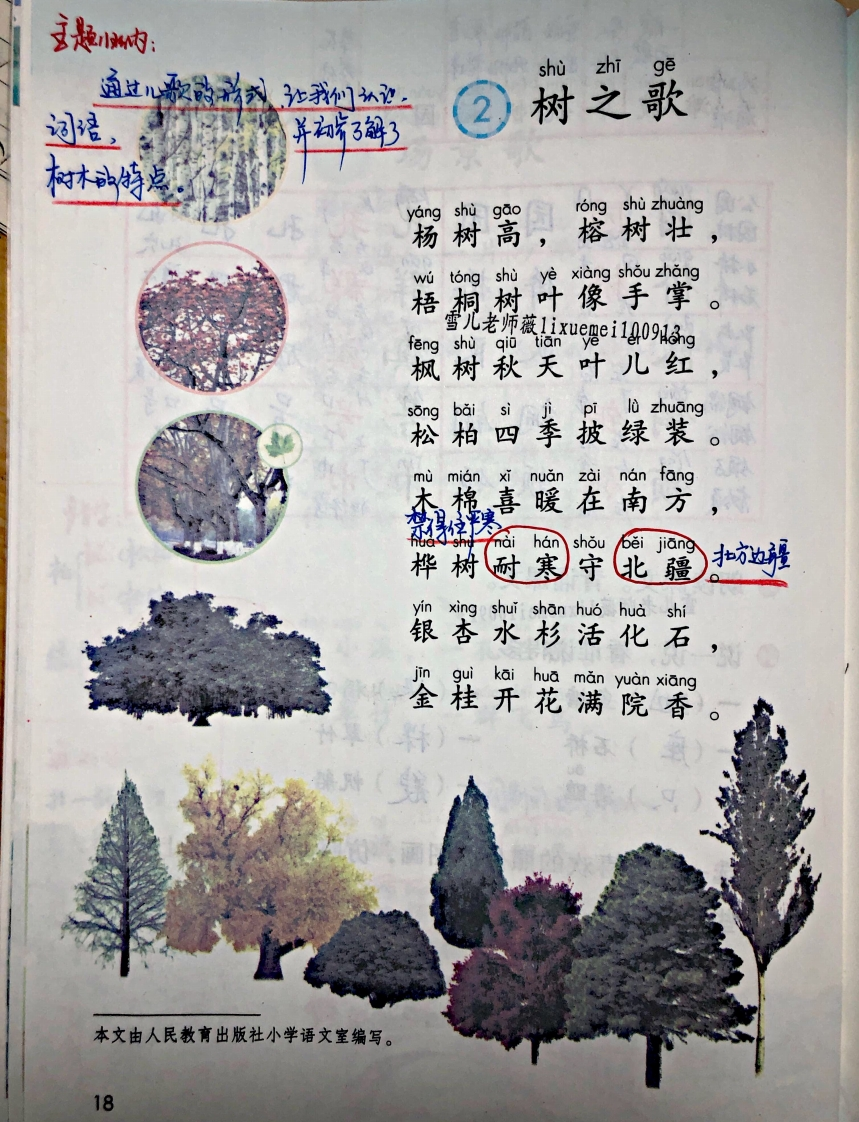 主题归纳：
通过儿歌的形式，让我们认识
词语，并初步了解了
树木的特点。
shù zhī gē
2 树之歌
yáng shù gāo róng shù zhuàng
杨树高，榕树壮，
wú tóng shù yè xiàng shǒu zhǎng
梧桐树叶像手掌。
雪儿老师薇lixuemei100913
fēng shù qiū tiān yè ér hóng
枫树秋天叶儿红，
sōng bǎi sì jì pī lǜ zhuāng
松柏四季披绿装。
mù mián xǐ nuǎn zài nán fāng
木棉喜暖在南方，
禁得住严寒
huà shù nài hán shǒu běi jiāng
桦树耐寒守北疆。
北方边疆
yín xìng shuǐ shān huó huà shí
银杏水杉活化石，
jīn guì kāi huā mǎn yuàn xiāng
金桂开花满院香。
本文由人民教育出版社小学语文室编写。
18